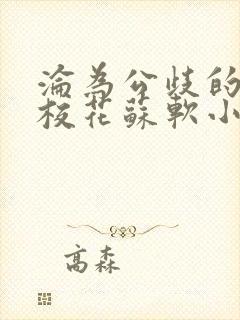 淪為公歧的
校花蘇軟小
高森